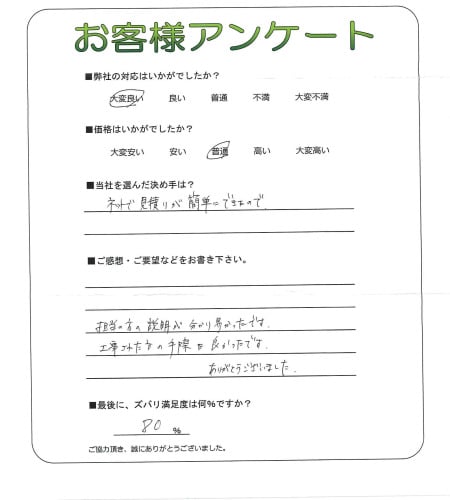 お客様アンケート
■弊社の対応はいかがでしたか？
大変良い 良い 普通 不満 大変不満
■価格はいかがでしたか？
大変安い 安い 普通 高い 大変高い
■当社を選んだ決め手は？
ネットで見積りが簡単にできたので。
■ご感想・ご要望などをお書き下さい。
担当の方の説明が分かり易かったです。
工事された方の手際も良かったです。
ありがとうございました。
■最後に、ズバリ満足度は何%ですか？
80 %
ご協力頂き、誠にありがとうございました。